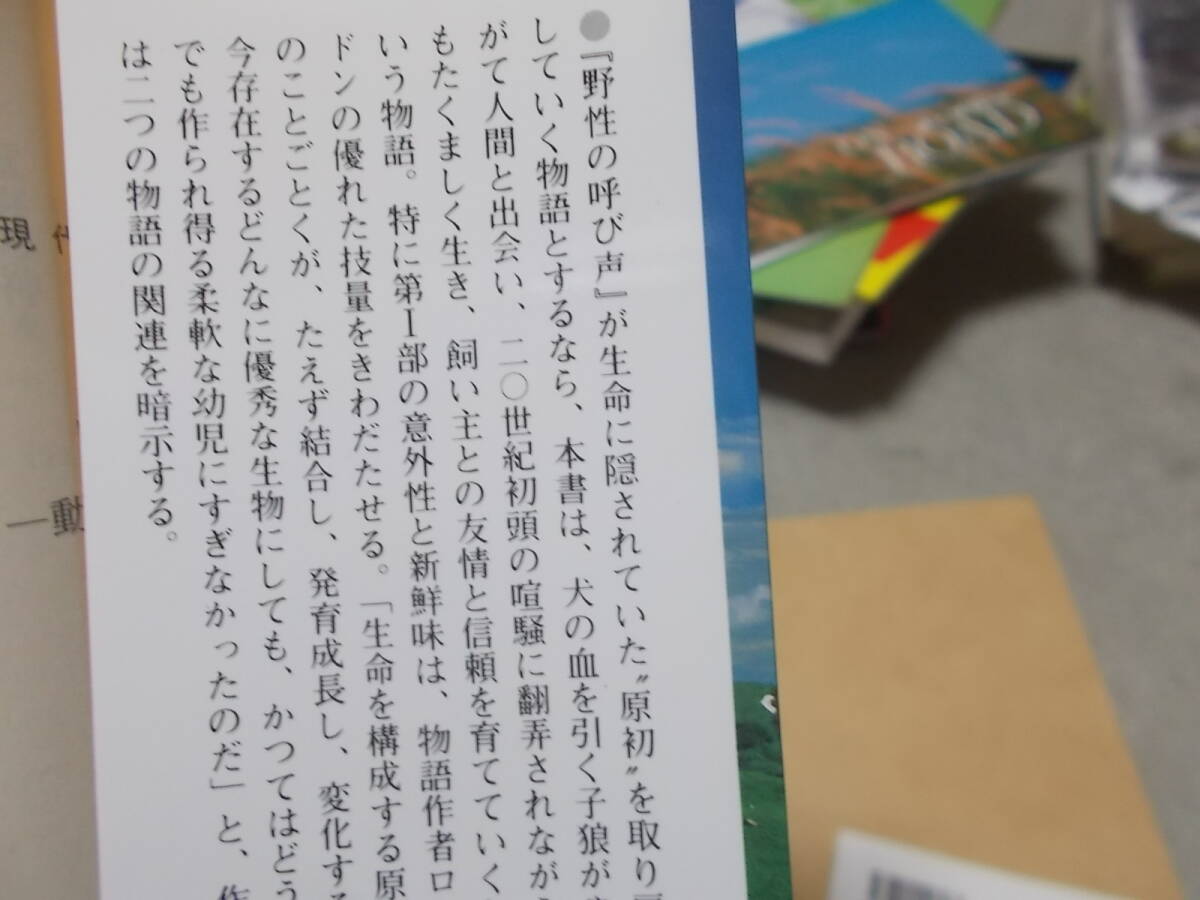 ●『野性の呼び声』が生命に隠されていた〝原初〟を取り
していく物語とするなら、本書は、犬の血を引く子狼が
がて人間と出会い、二〇世紀初頭の喧騒に翻弄されなが
もたくましく生き、飼い主との友情と信頼を育てていく
いう物語。特に第Ⅰ部の意外性と新鮮味は、物語作者ロ
ドンの優れた技量をきわだたせる。「生命を構成する原
のことごとくが、たえず結合し、発育成長し、変化する
今存在するどんなに優秀な生物にしても、かつてはどう
でも作られ得る柔軟な幼児にすぎなかったのだ」と、作
は二つの物語の関連を暗示する。
現代
―動